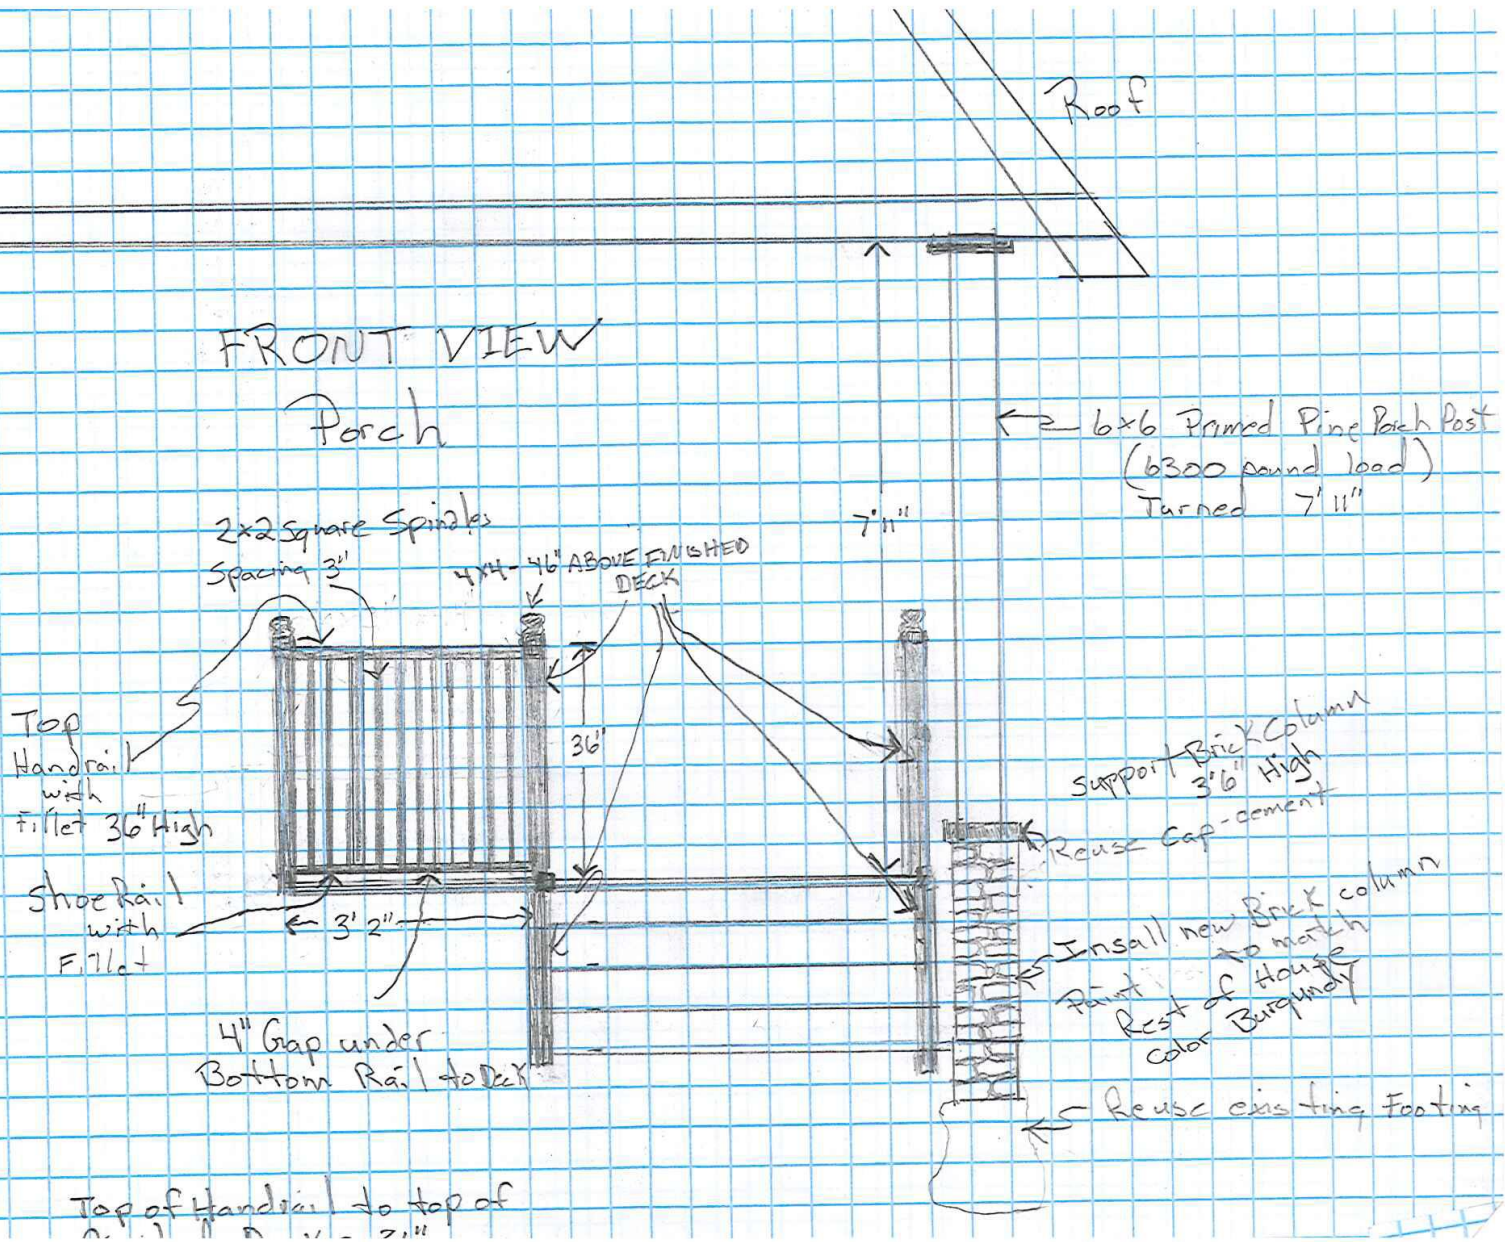 Roof
FRONT VIEW
Porch
6x6 Primed Pine Porch Post
(6300 pound load)
Turned 7' 11"
7' 11"
2x2 Square Spindles
Spacing 3"
4x4 - 46" ABOVE FINISHED
DECK
36"
Top
Handrail
with
Fillet 36" High
Shoe Rail
with
Fillet
3' 2"
4" Gap under
Bottom Rail to Deck
Support Brick Column
3'6" High
Reuse Cap - cement
Insall new Brick column
to match
Paint
Rest of House
color Burgundy
Reuse existing Footing
Top of Handrail to top of